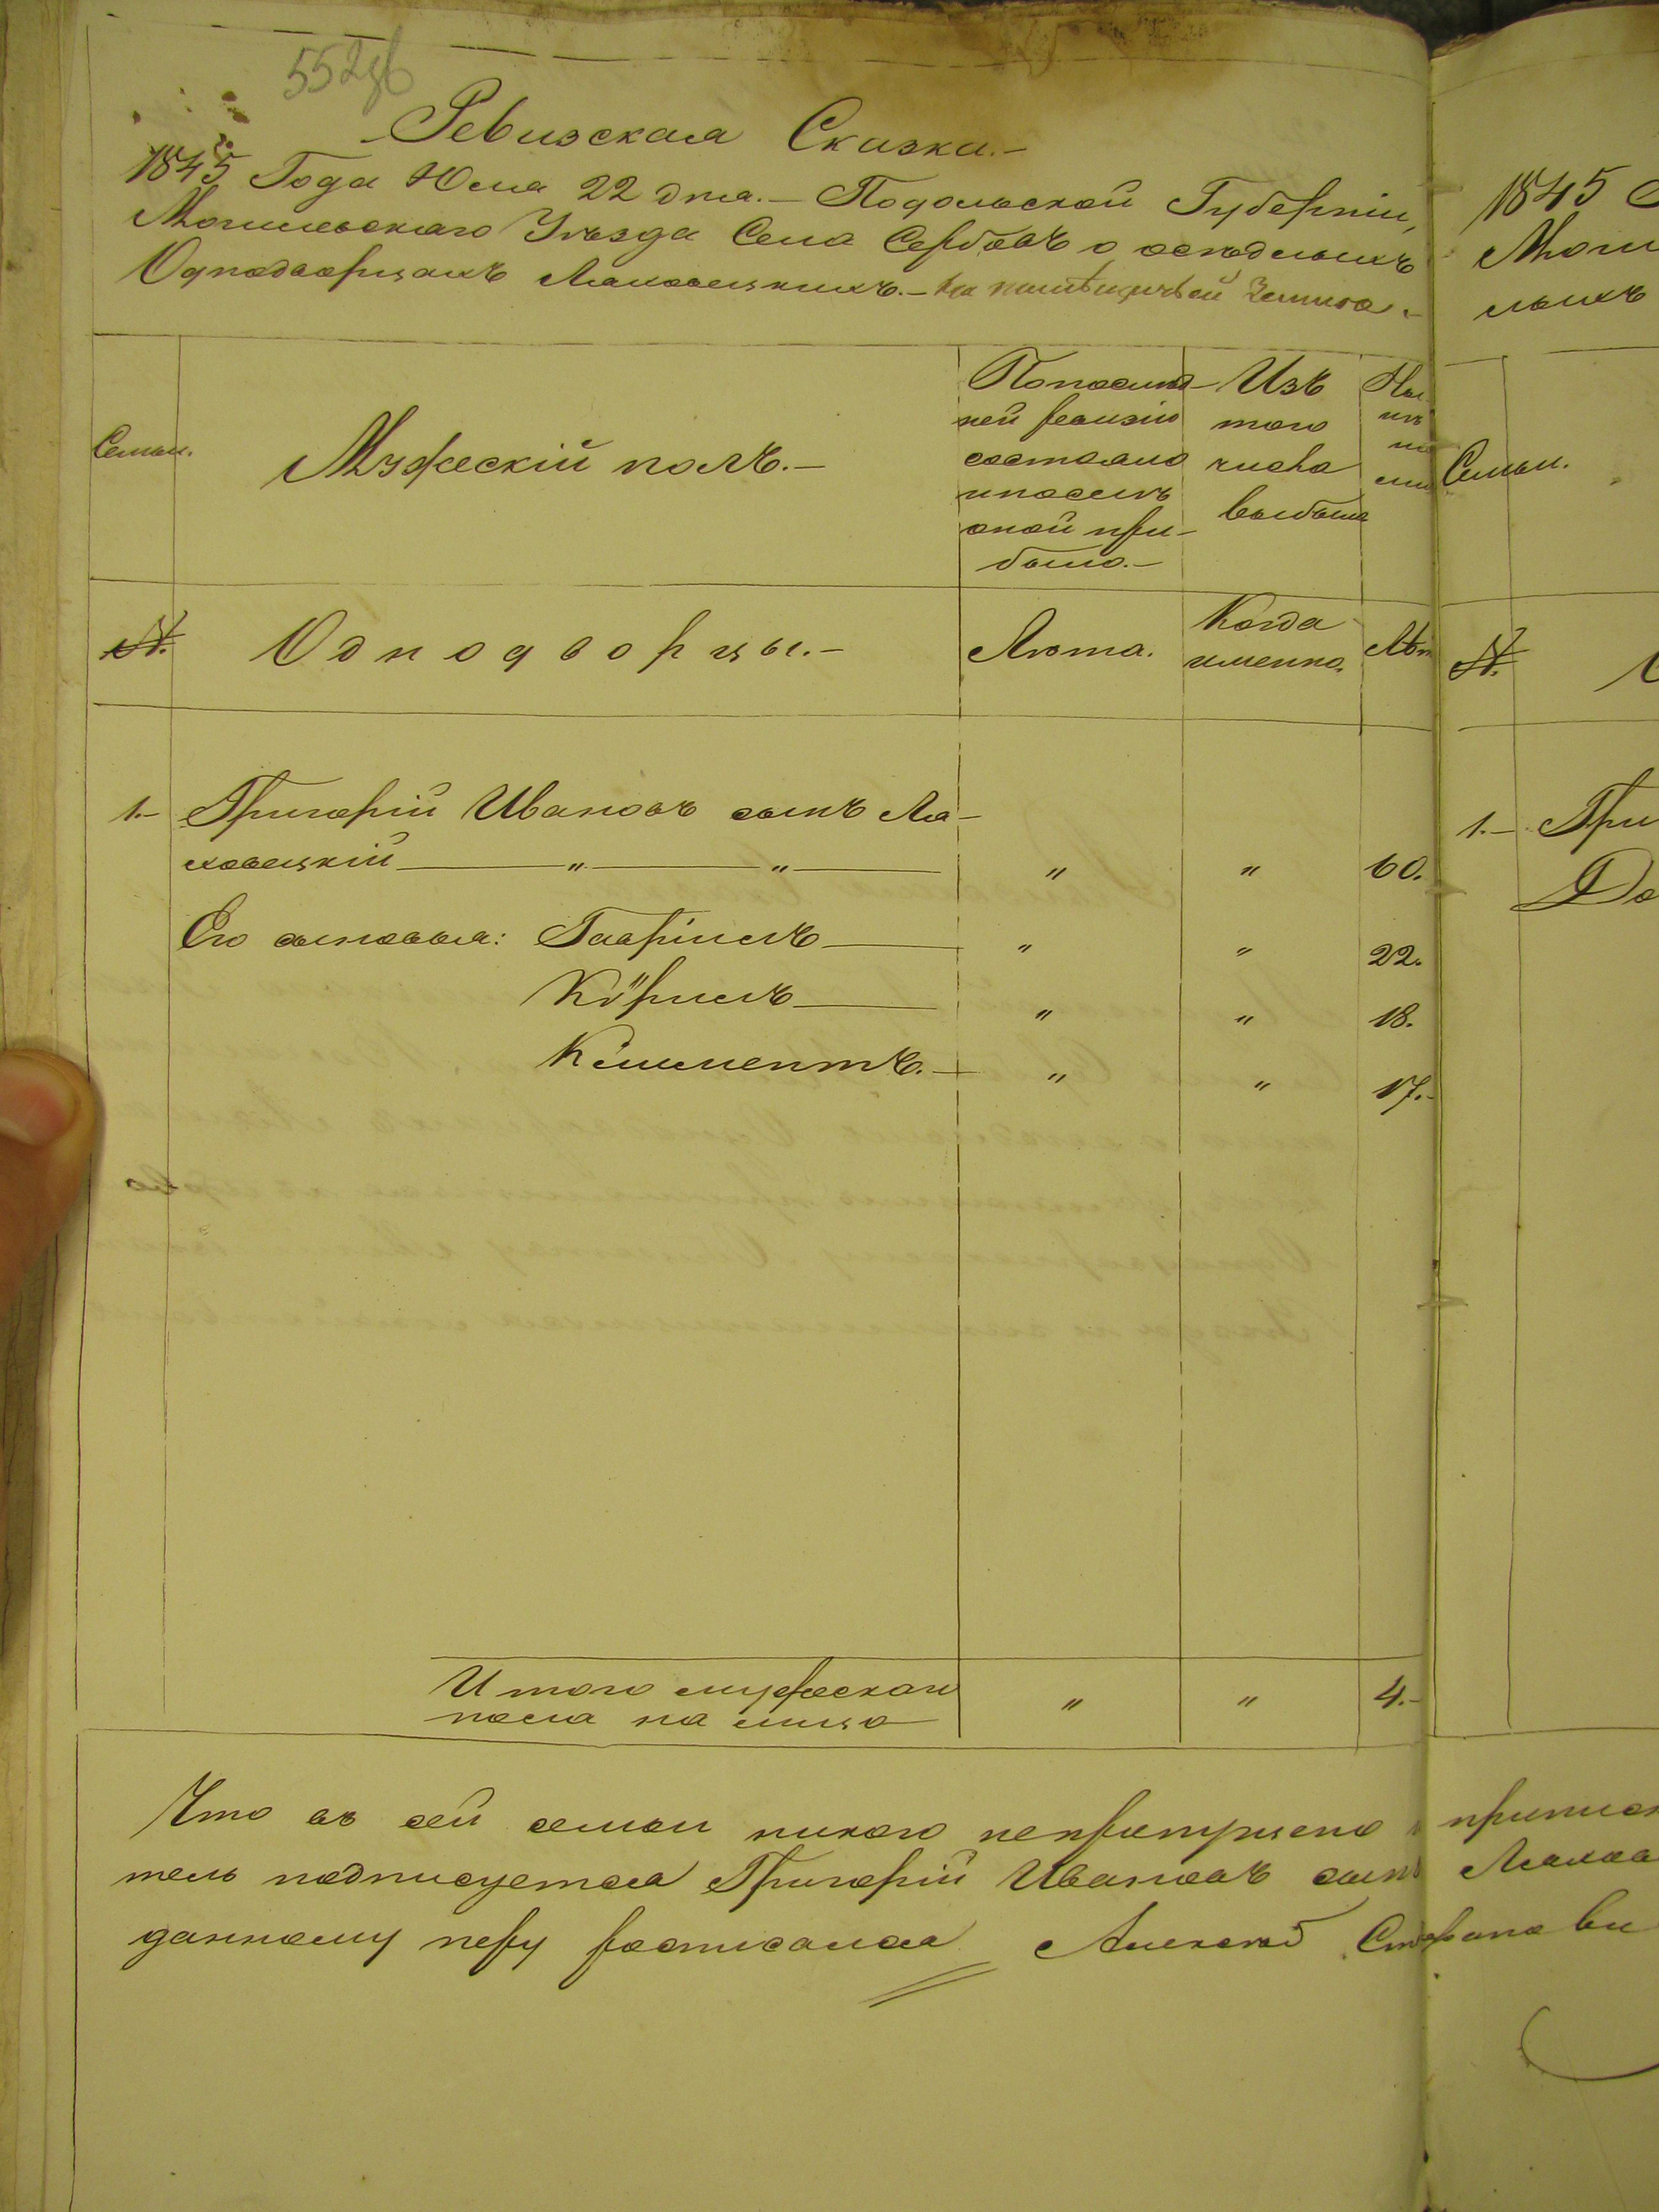 552 зв
Ревизская Сказка.—
1845го Года Юля 22 дня.— Подольской Губерніи,
Могилевскаго Уѣзда Села Сербовъ о осѣдлыхъ
Однодворцахъ Ляховецкихъ.— На помѣщичьей Землѣ.—
Семьи.
Мужескій полъ.—
Попослѣд-
ней ревизіи
состояло
ипослѣ
оной при-
было.—
Изъ
того
числа
выбыло
Ны
нѣ
на
ли
№.
Однодворцы.—
Лѣта.
Когда
именно.
Лѣт
1.— Григорій Ивановъ сынъ Ля-
ховецкій — " — " — " " 60.
Его сыновья: Гавріилъ — " " 22.
Кирилъ — " " 18.
Климентъ. — " " 17.—
Итого мужескаго
пола на лицо " " 4.—
Что въ сей семьи никого непропущено
тель подписуется Григорій Ивановъ сынъ
данному перу росписался Алексѣй
1845
Моги
лыхъ
Семьи.
№.
1.— Гри
До